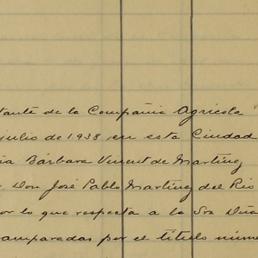 tante de la Compañia Agricola
julio de 1938 en esta Ciudad
ia Bárbara Vincent de Martinez
Don José Pablo Martinez del Rio
or lo que respecta a la Sra Dña
amparadas por el título núme